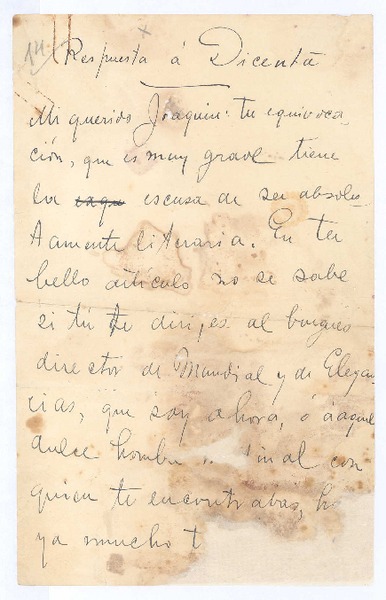 14
Respuesta á Dicenta
Mi querido Joaquin: tu equivoca-
ción, que es muy grave tiene
la escusa de ser absolu-
tamente literaria. En tu
bello artículo no se sabe
si tú te diriges al burgues
director de Mundial y de Elegan-
cias, que soy ahora, ó á aquel
dulce hombre
con
quien te encontrabas, ha
ya mucho t